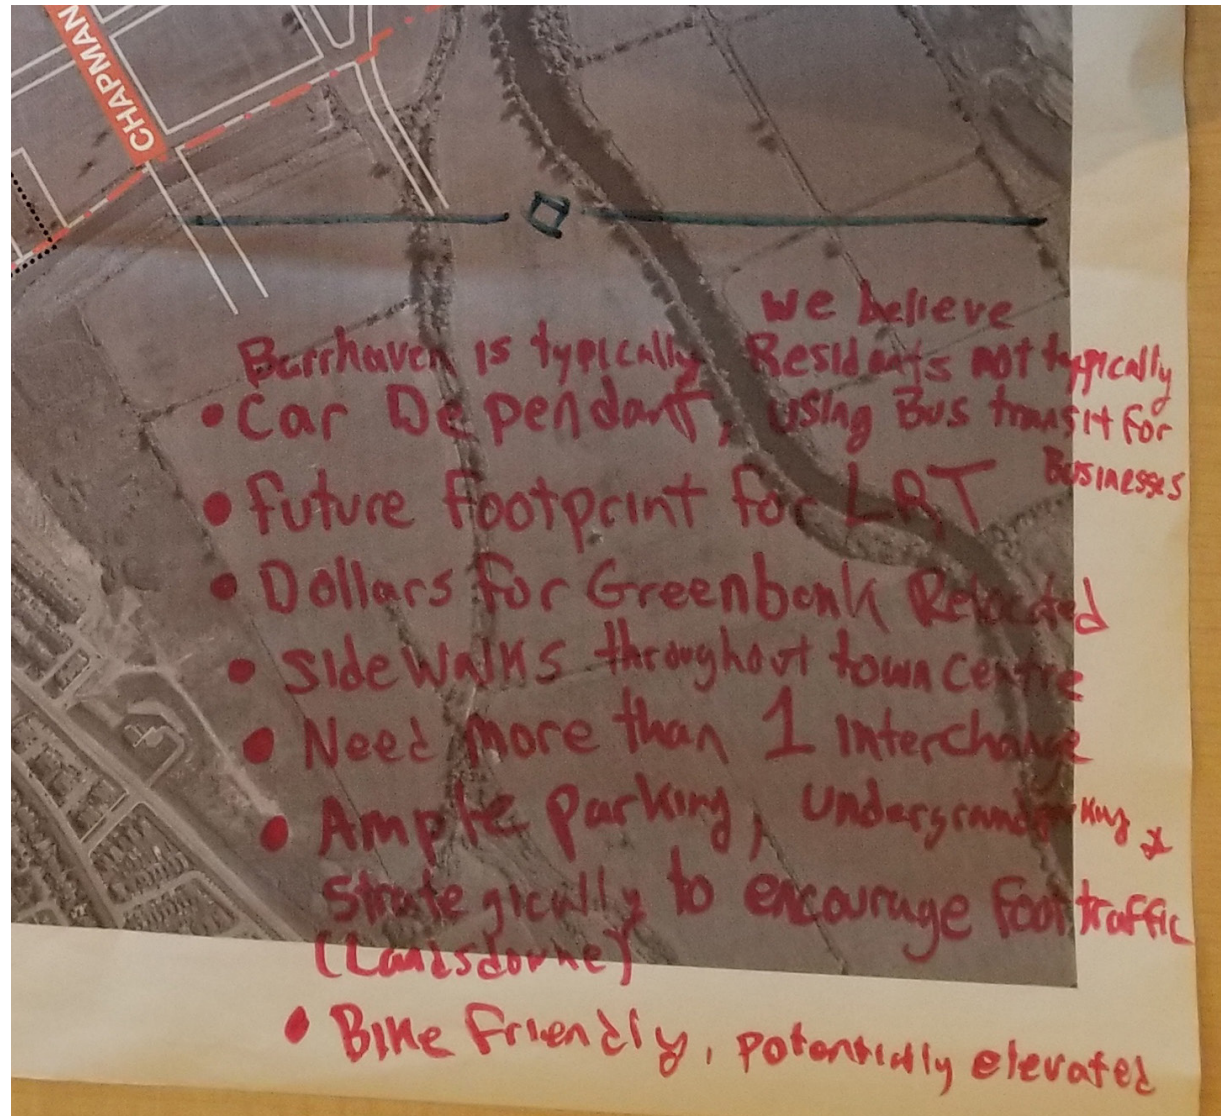 CHAPMAN
we believe
Barrhaven is typically Residents not typically
• Car Dependant, using Bus transit for
Businesses
• future footprint for LRT
• Dollars for Greenbank Relocated
• sidewalks throughout town centre
• Need more than 1 interchange
• Ample parking, underground parking &
strategically to encourage foot traffic
(Landsdowne)
• Bike friendly, potentially elevated